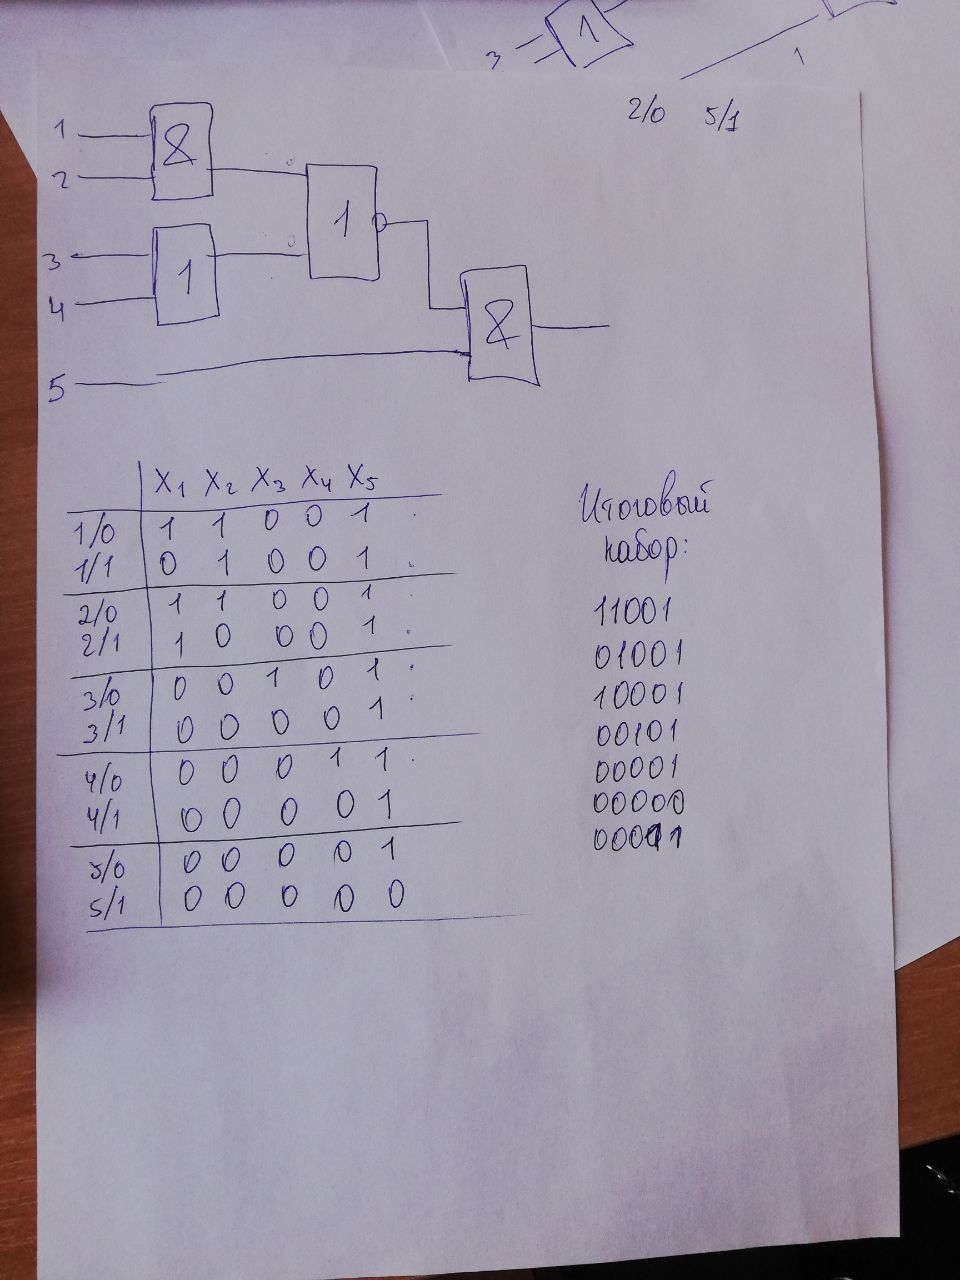 3
1
1
2/0 5/1
1
2
&
3
4
1
1
&
5
X1 X2 X3 X4 X5
1/0 1 1 0 0 1
1/1 0 1 0 0 1
2/0 1 1 0 0 1
2/1 1 0 0 0 1
3/0 0 0 1 0 1
3/1 0 0 0 0 1
4/0 0 0 0 1 1
4/1 0 0 0 0 1
5/0 0 0 0 0 1
5/1 0 0 0 0 0
Итоговый
набор:
11001
01001
10001
00101
00001
00000
00011